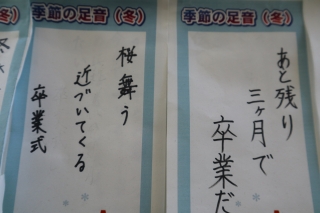 季節の足音（冬）
あと残り
三ヶ月で
卒業だ
季節の足音（冬）
桜舞う
近づいてくる
卒業式